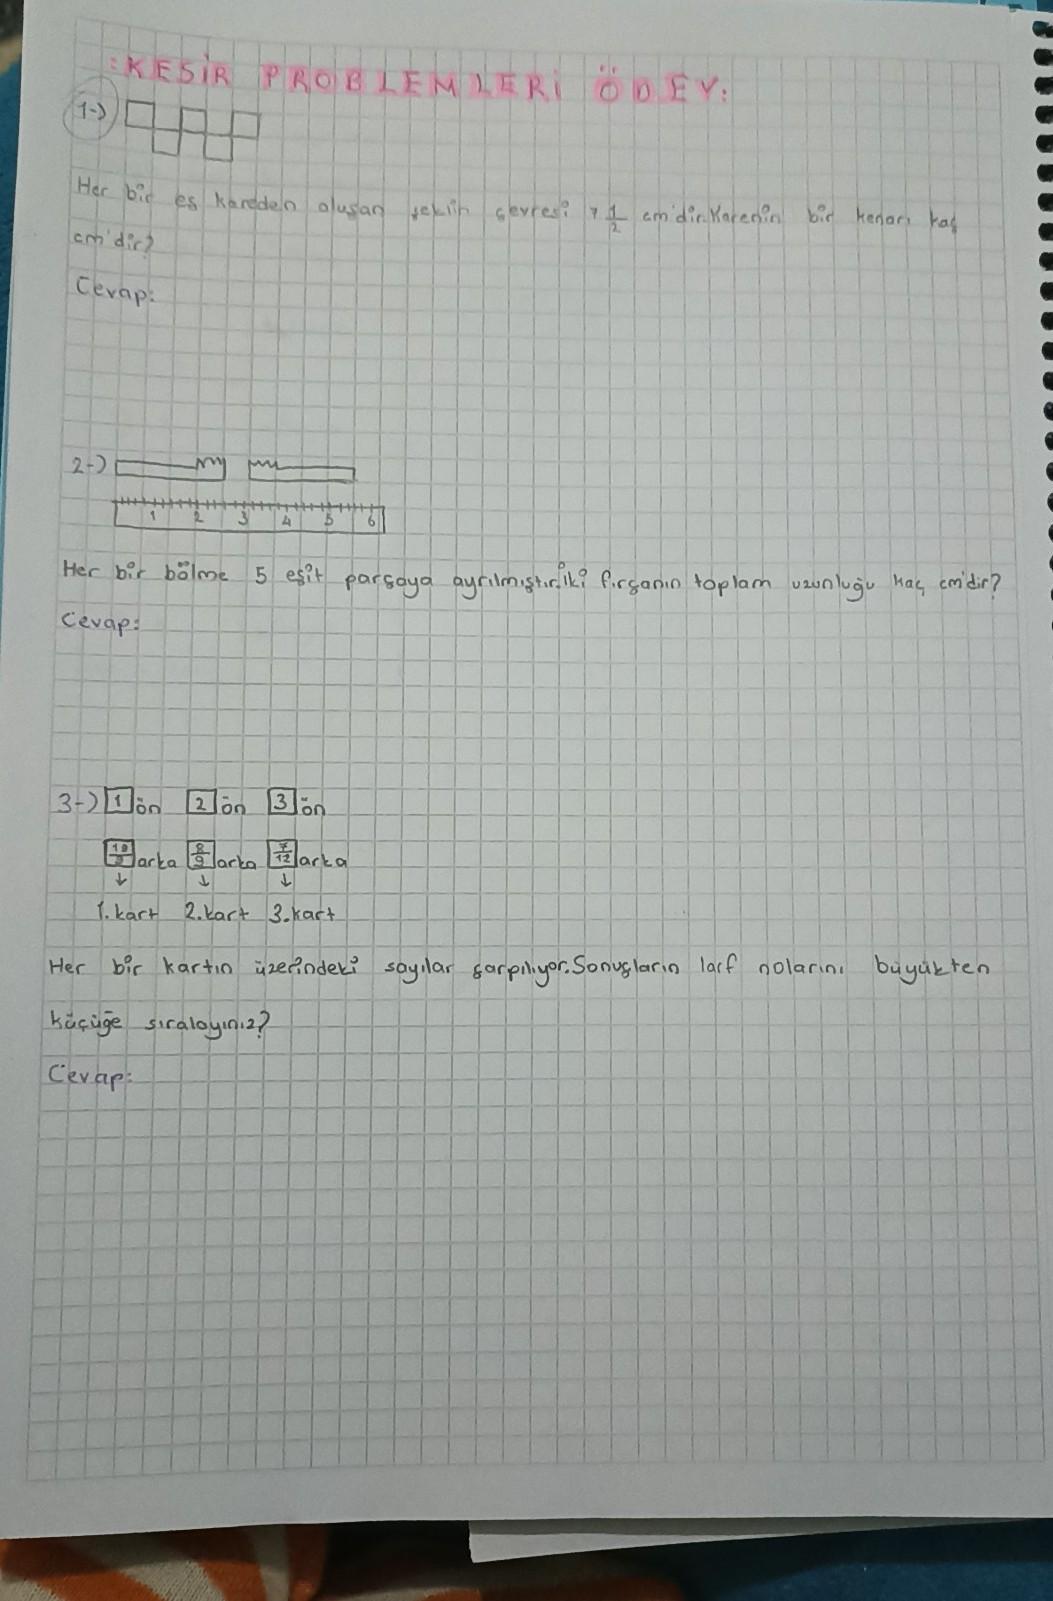 :KESİR PROBLEMLERİ ÖDEV:
1-)
Her bir eş kareden oluşan şeklin çevresi 7 1/2 cm'dir. Karenin bir kenarı kaç
cm'dir?
Cevap:
2-)
1 2 3 4 5 6
Her bir bölme 5 eşit parçaya ayrılmıştır. İki fırçanın toplam uzunluğu kaç cm'dir?
Cevap:
3-) 1 ön 2 ön 3 ön
arka 8/9 arka 7/12 arka
↓ ↓ ↓
1. kart 2. kart 3. kart
Her bir kartın üzerindeki sayılar çarpılıyor. Sonuçların nolarını büyükten
küçüğe sıralayınız?
Cevap: